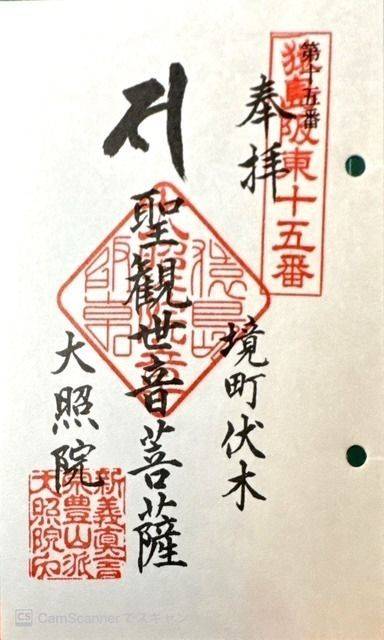 第十五番
猿島阪東十五番
奉拝
境町伏木
聖観世音菩薩
大照院
新義真言
宗豊山派
大照院印
CS CamScannerでスキャン